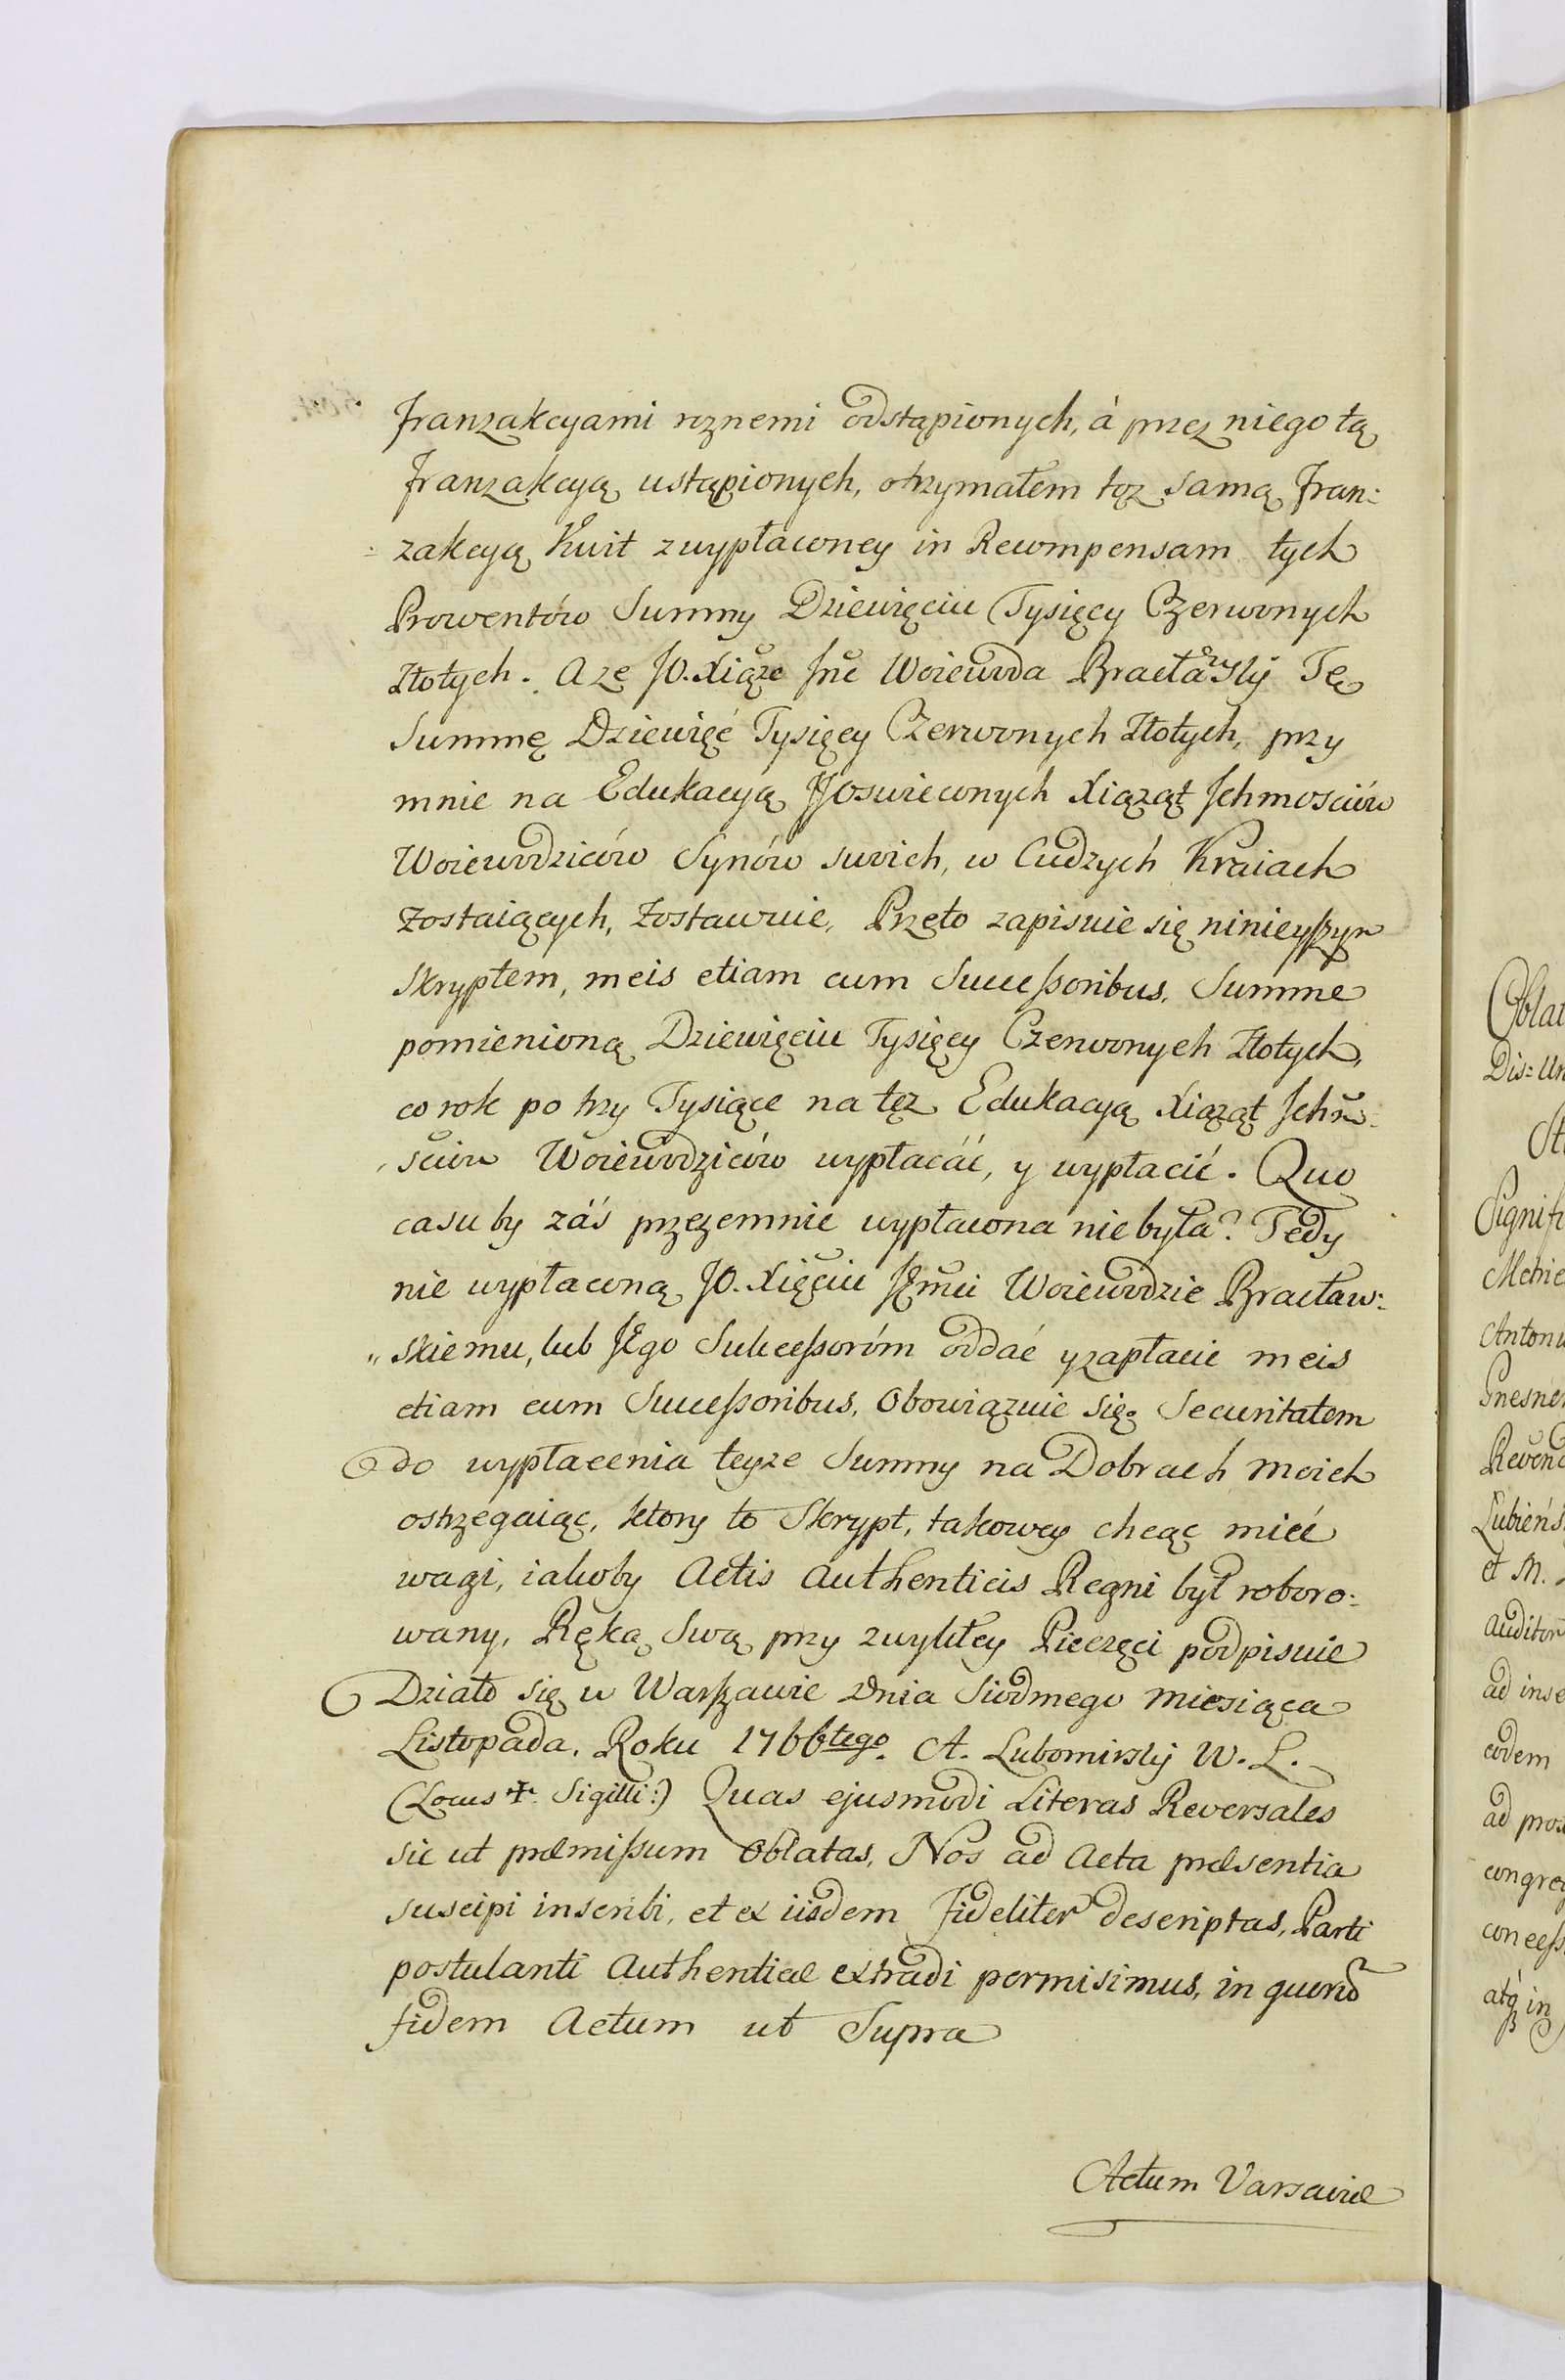 Tranzakcyami roznemi odstąpionych, á przez niego tą
Tranzakcyą ustąpionych, otrzymałem tąz samą Tran:
: zakcyą Kwit z wypłaconey in Recompensam tych
Prowentów Summy Dziewięciu Tysięcy Czerwonych
Złotych. A ze JO. Xiąze Jmć Woiewoda Bracławski Tę
Summę Dziewięć Tysięcy Czerwonych Złotych, przy
mnie na Edukacyą JJOswieconych Xiąząt Jchmosciów
Woiewodziców Synów swoich, w Cudzych Kraiach
zostaiących, zostawuie, Przeto zapisuie się ninieyszym
Skryptem, meis etiam cum Successoribus, Summe
pomienioną Dziewięciu Tysięcy Czerwonych Złotych,
co rok po trzy Tysiące na tęz Edukacyą Xiąząt Jchmo:
sciów Woiewodziców wypłacáć, y wypłacić. Quo
casu by záś przezemnie wypłacona nie była? Tedy
nie wypłaconą JO. Xięciu JEmci Woiewodzie Bracław:
„ skiemu, lub JEgo Sukcessoróm oddać y zapłacić meis
etiam cum Successoribus, Obowiązuie się. Securitatem
do wypłacenia teyze Summy na Dobrach moich
ostrzegaiąc, ktory to Skrypt, takowey chcąc mieć
wagi, iakoby Actis Authenticis Regni był roboro:
wany, Ręką Swą przy zwykłey Pieczęci podpisuie
Działo się w Warszawie Dnia Siodmego Miesiąca
Listopada, Roku 1766tego. A. Lubomirski W. L.
(Locus ✝ Sigilli:) Quas ejusmodi Literas Reversales
sic ut præmissum Oblatas, Nos ad Acta præsentia
suscipi inscribi, et ex iisdem fideliter descriptas, Parti
postulanti Authenticæ extradi permisimus, in quorū
fidem Actum ut Supra
Actum Varsaviæ